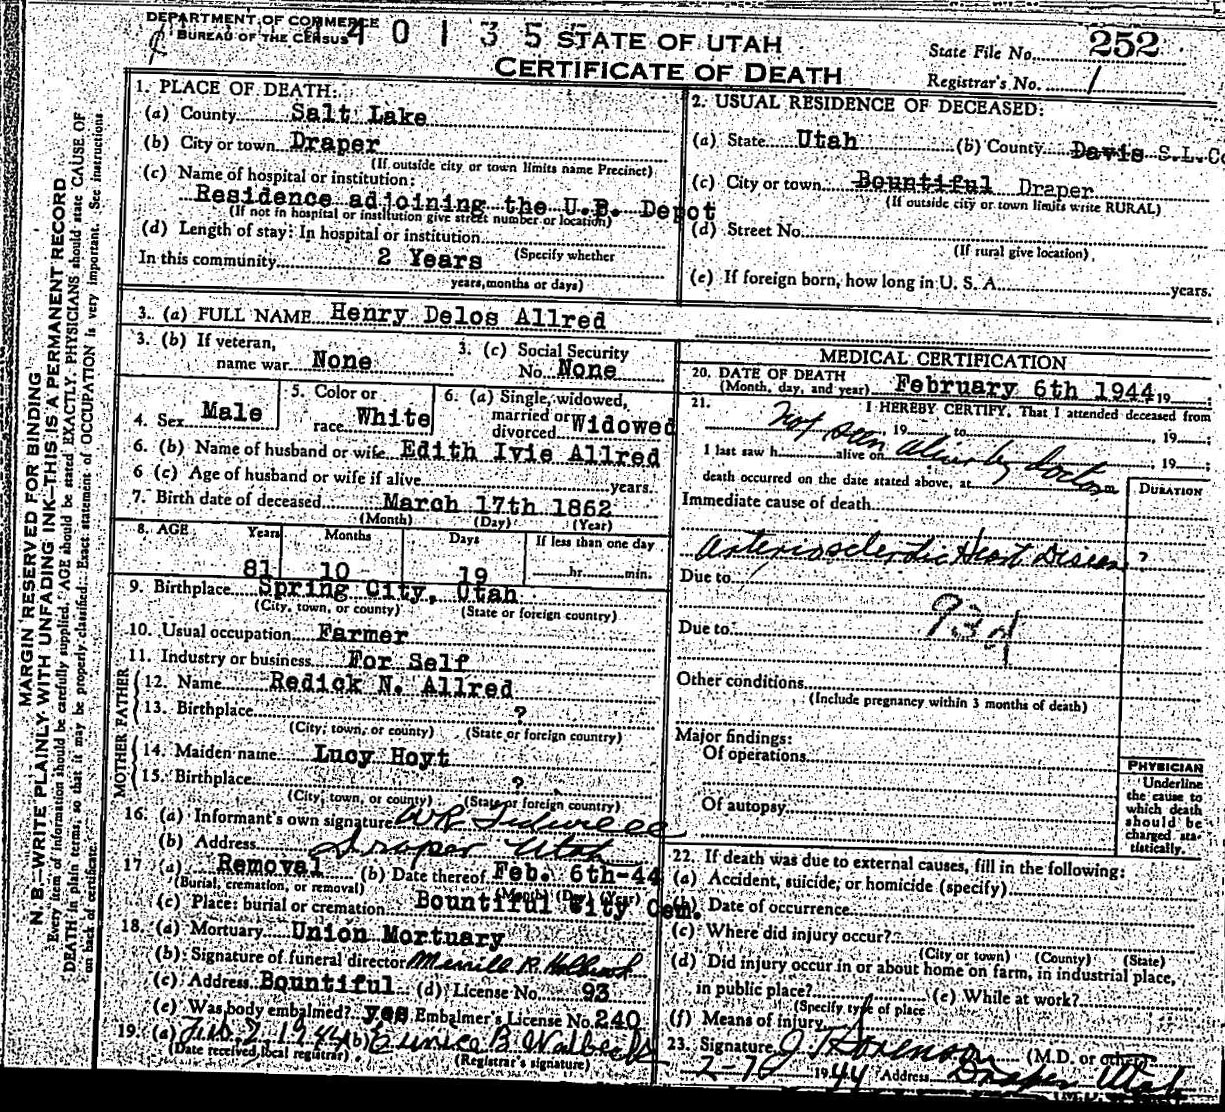 DEPARTMENT OF COMMERCE
BUREAU OF THE CENSUS
4 0 1 3 5 5
STATE OF UTAH
CERTIFICATE OF DEATH
State File No. 252
Registrar's No. 1
MARGIN RESERVED FOR BINDING
N. B.—WRITE PLAINLY WITH UNFADING INK—THIS IS A PERMANENT RECORD
Every item of information should be carefully supplied. AGE should be stated EXACTLY. PHYSICIANS should state CAUSE OF
DEATH in plain terms, so that it may be properly classified. Exact statement of OCCUPATION is very important. See instructions
on back of certificate.
1. PLACE OF DEATH:
(a) County Salt Lake
(b) City or town Draper
(If outside city or town limits name Precinct)
(c) Name of hospital or institution:
Residence adjoining the U.B. Depot
(If not in hospital or institution give street number or location)
(d) Length of stay: In hospital or institution
In this community 2 Years (Specify whether
years, months or days)
2. USUAL RESIDENCE OF DECEASED:
(a) State Utah (b) County Davis S.L.Co
(c) City or town Bountiful Draper
(If outside city or town limits write RURAL)
(d) Street No.
(If rural give location)
(e) If foreign born, how long in U. S. A. years.
3. (a) FULL NAME Henry Delos Allred
3. (b) If veteran,
name war None
3. (c) Social Security
No. None
4. Sex Male
5. Color or
race White
6. (a) Single, widowed,
married or
divorced Widowed
6. (b) Name of husband or wife Edith Ivie Allred
6 (c) Age of husband or wife if alive years.
7. Birth date of deceased March 17th 1862
(Month) (Day) (Year)
8. AGE Years Months Days If less than one day
81 10 19 hr. min.
9. Birthplace Spring City, Utah
(City, town, or county) (State or foreign country)
10. Usual occupation Farmer
11. Industry or business For Self
FATHER
12. Name Redick N. Allred
13. Birthplace ?
(City, town, or county) (State or foreign country)
MOTHER
14. Maiden name Lucy Hoyt
15. Birthplace ?
(City, town, or county) (State or foreign country)
16. (a) Informant's own signature WR
(b) Address Draper Utah
17 (a) Removal (b) Date thereof Feb. 6th-44
(Burial, cremation, or removal) (Month) (Day) (Year)
(c) Place: burial or cremation Bountiful City Cem.
18. (a) Mortuary Union Mortuary
(b) Signature of funeral director Merrill R. Holbrook
(c) Address Bountiful (d) License No. 93
(e) Was body embalmed? yes Embalmer's License No. 240
19. (a) Feb. 7, 1944 (b) Eunice B.
(Date received local registrar) (Registrar's signature)
MEDICAL CERTIFICATION
20. DATE OF DEATH
(Month, day, and year) February 6th 1944 19
21. I HEREBY CERTIFY, That I attended deceased from
, 19 to , 19 ;
Not seen alive by doctor
I last saw h alive on , 19 ;
death occurred on the date stated above, at m
DURATION
Immediate cause of death
Arteriosclerotic Heart Disease ?
Due to
93d
Due to
Other conditions
(Include pregnancy within 3 months of death)
Major findings:
Of operations
Of autopsy
PHYSICIAN
Underline
the cause to
which death
should be
charged sta-
tistically.
22. If death was due to external causes, fill in the following:
(a) Accident, suicide, or homicide (specify)
(b) Date of occurrence
(c) Where did injury occur?
(City or town) (County) (State)
(d) Did injury occur in or about home on farm, in industrial place,
in public place? (e) While at work?
(Specify type of place
(f) Means of injury
23. Signature J Sorenson (M.D. or other)
2-7 1944 Address Draper Utah